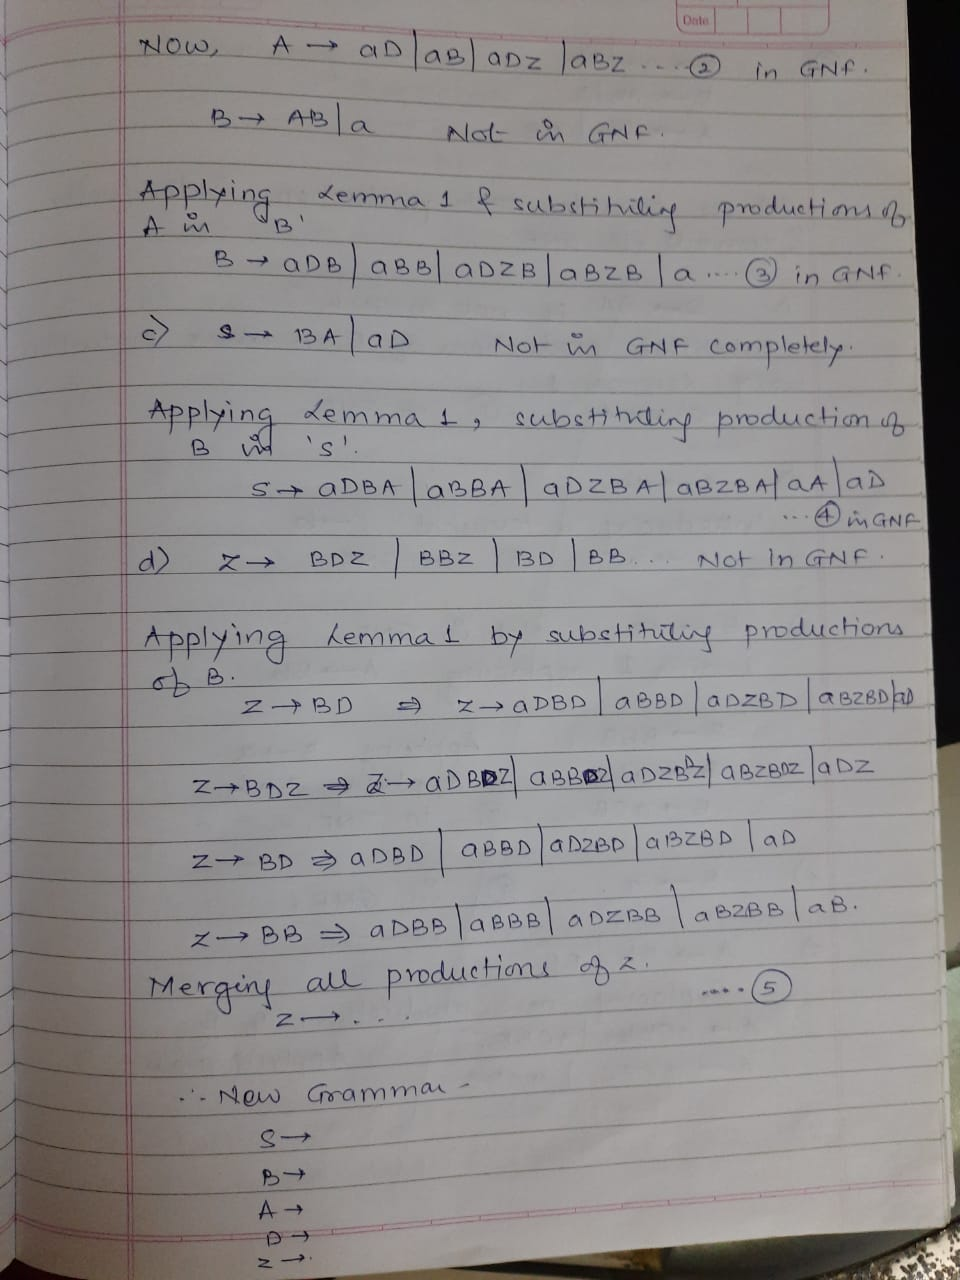 Date
Now, A → aD | aB | aDZ | aBZ .... ② in GNF.
B → AB | a Not in GNF.
Applying Lemma 1 & substituting productions of
A in 'B'
B → aDB | aBB | aDZB | aBZB | a .... ③ in GNF.
c) S → BA | aD Not in GNF completely.
Applying Lemma 1, substituting production of
B in 'S'.
S → aDBA | aBBA | aDZBA | aBZBA | aA | aD
... ④ in GNF
d) Z → BDZ | BBZ | BD | BB... Not in GNF.
Applying Lemma 1 by substituting productions
of B.
Z → BD ⇒ Z → aDBD | aBBD | aDZBD | aBZBD | aD
Z → BDZ ⇒ Z → aDBDZ | aBBDZ | aDZBDZ | aBZBDZ | aDZ
Z → BD ⇒ aDBD | aBBD | aDZBD | aBZBD | aD
Z → BB ⇒ aDBB | aBBB | aDZBB | aBZBB | aB.
Merging all productions of Z.
Z → ... .... ⑤
∴ New Grammar -
S →
B →
A →
D →
Z →.